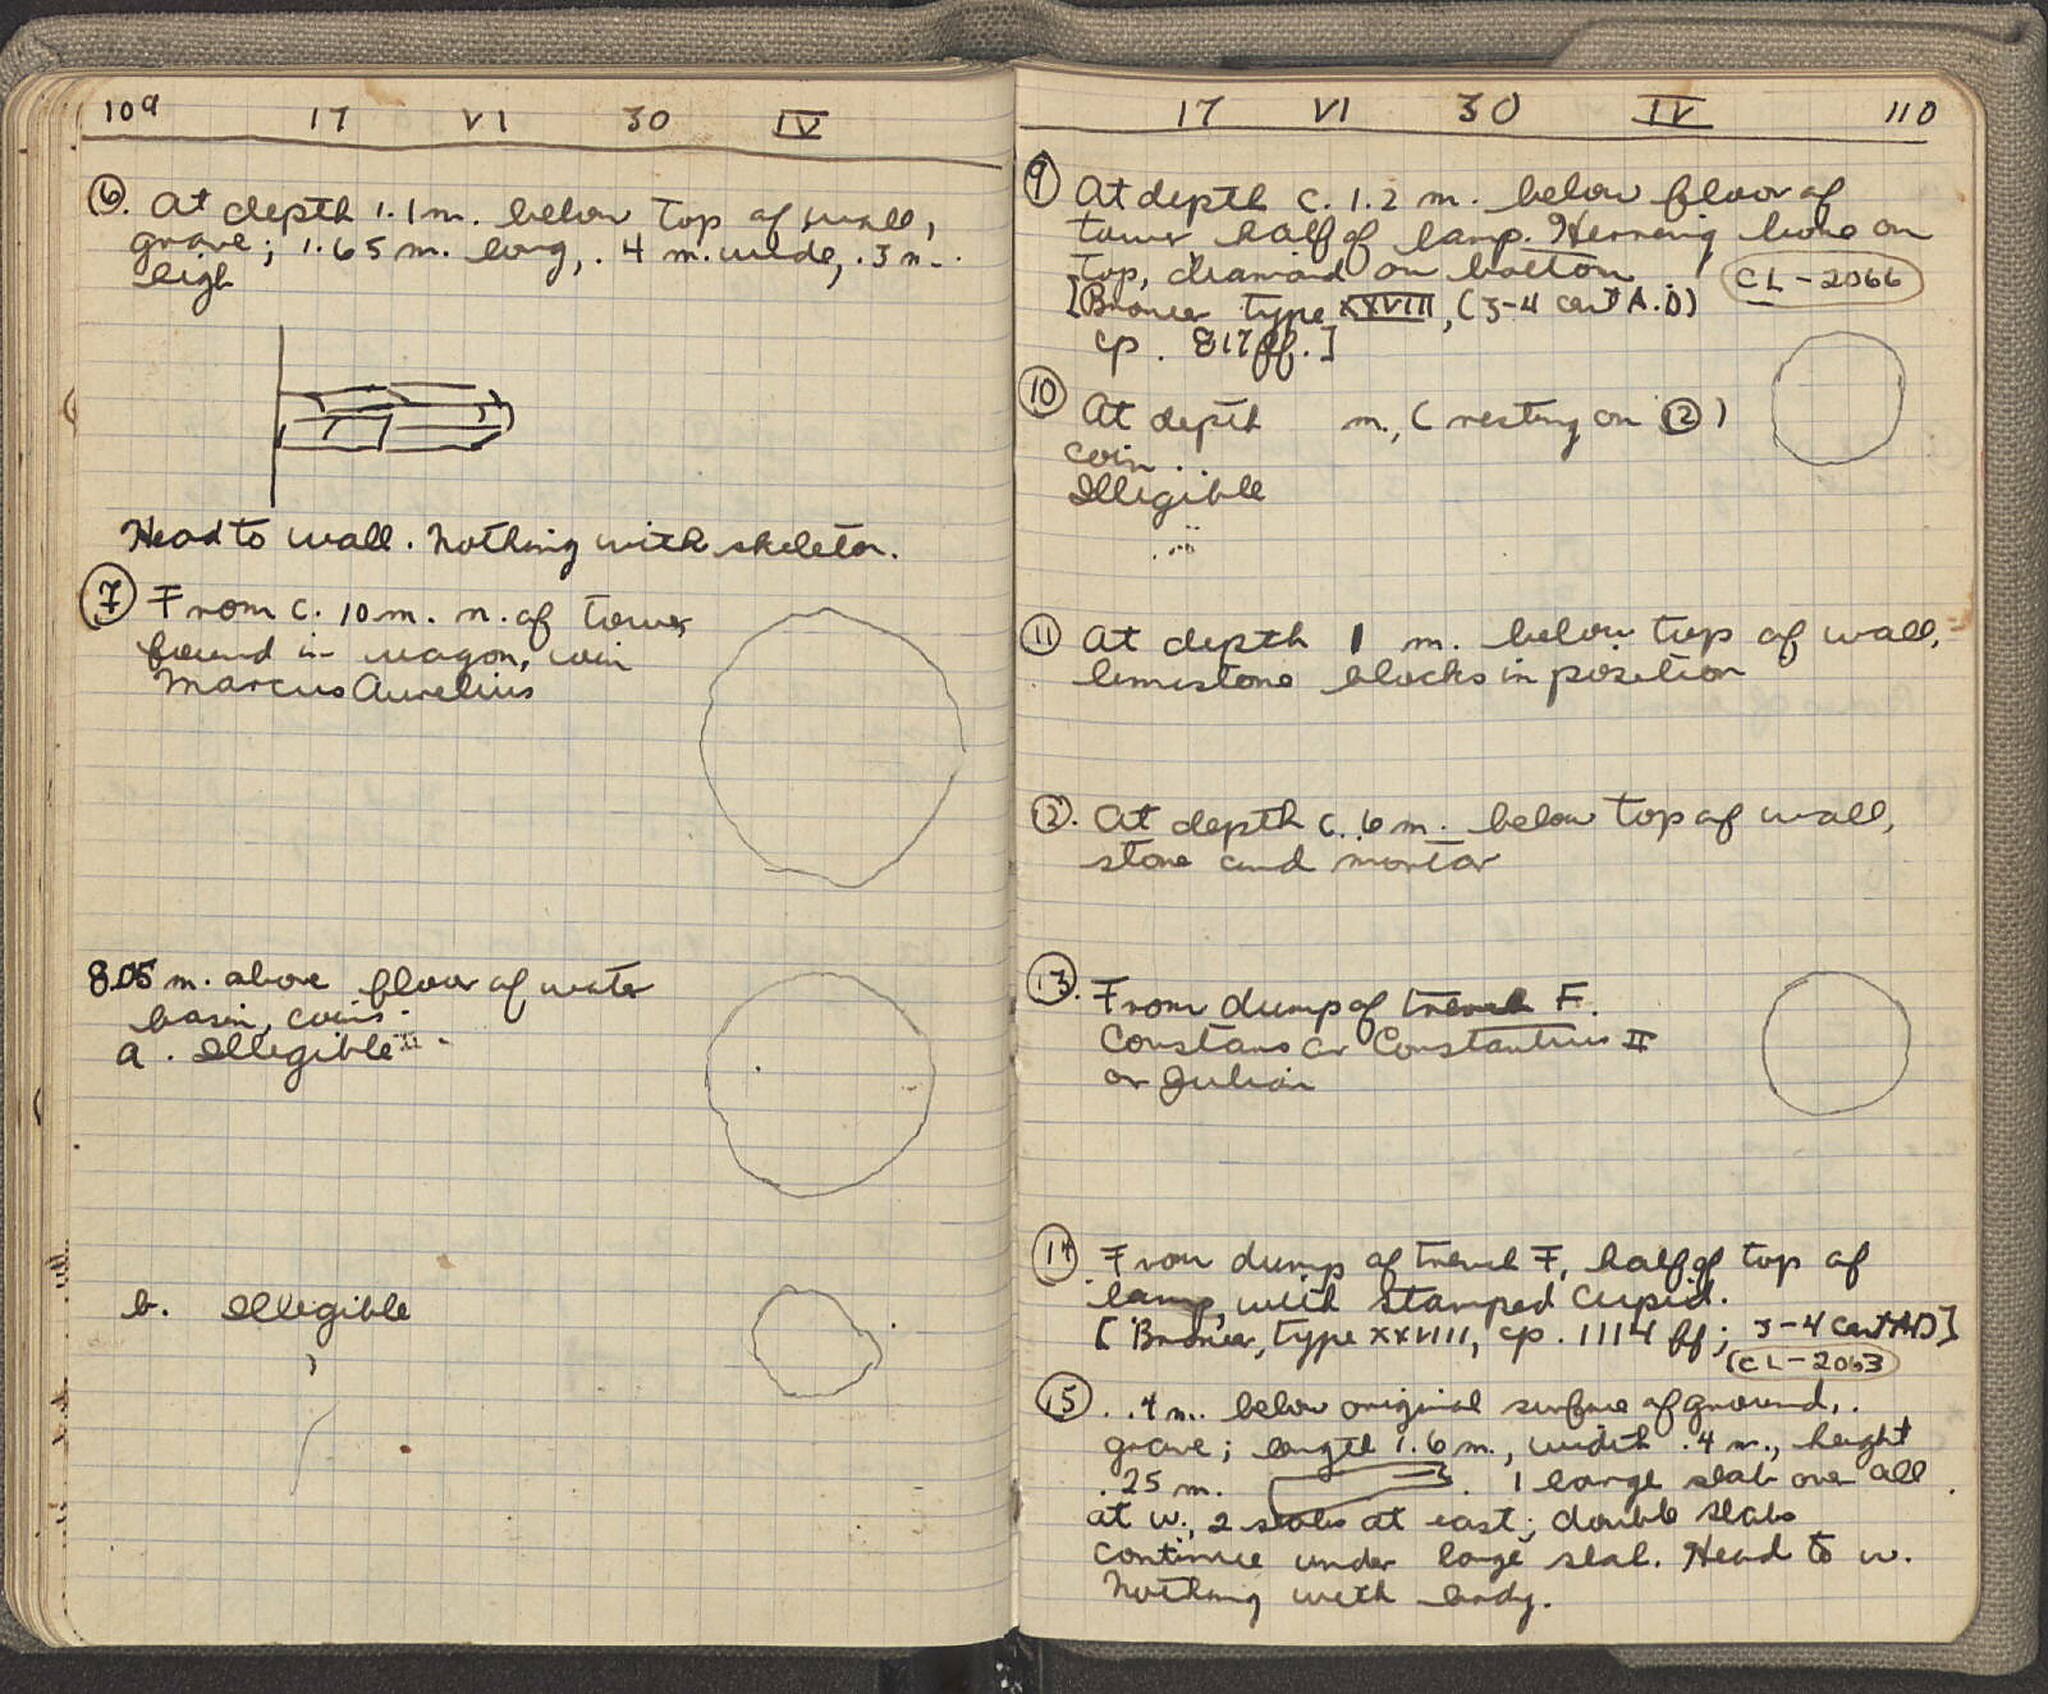 109 17 VI 30 IV
⑥. At depth 1.1 m. below top of wall,
grave; 1.65 m. long, .4 m. wide, .3 m.
high
Head to wall. Nothing with skeleton.
⑦ From c. 10 m. n. of tower
found in wagon, coin
Marcus Aurelius
8 .05 m. above floor of water
basin, coins.
a. Illegible
b. Illegible
17 VI 30 IV 110
⑨ At depth c. 1.2 m. below floor of
tower half of lamp. Herring bone on
top, diamond on bottom
CL-2066
[Broneer type XXVIII, (3-4 cent A.D)
cp. 817 ff.]
⑩ At depth m., (resting on ⑫)
coin.
Illegible
⑪ At depth 1 m. below top of wall,
limestone blocks in position
⑫. At depth c. .6 m. below top of wall,
stone and mortar
⑬. From dump of trench F.
Constans or Constantius II
or Julian
⑭ From dump of trench F, half of top of
lamp, with stamped Cupid.
[Broneer, type XXVIII, cp. 1114 ff; 3-4 cent AD]
CL-2063
⑮ .4 m. below original surface of ground,
grave; length 1.6 m., width .4 m., height
.25 m. 1 large slab over all
at w., 2 slabs at east; double slabs
continue under large slab. Head to w.
Nothing with body.